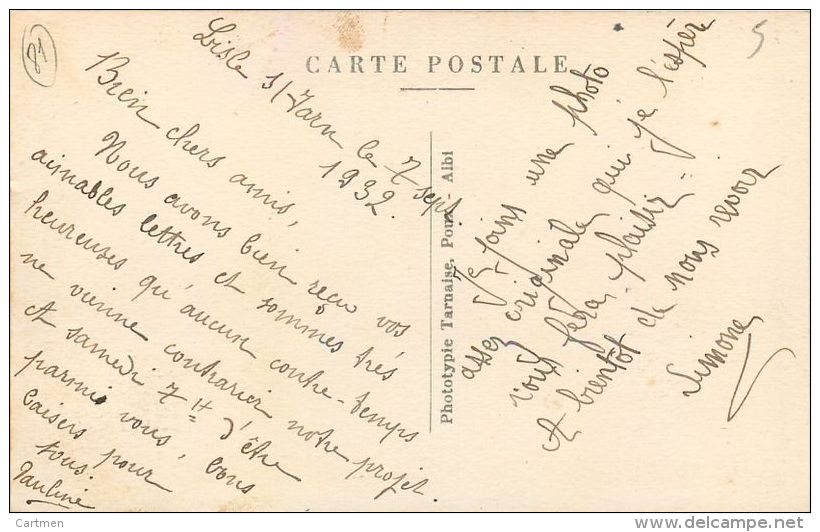 81
5
CARTE POSTALE
Lisle s/Tarn le 7 sept.
1932
Bien chers amis,
Nous avons bien reçu vos
aimables lettres et sommes très
heureuses qu'aucun contre-temps
ne vienne contrarier notre projet
A samedi 7H d'être
parmi vous, bons
baisers pour
tous.
Pauline
Phototypie Tarnaise, Poux - Albi
Je joins une photo
assez originale qui je l'espère
vous fera plaisir -
A bientôt de nous revoir
Simone
Cartmen
www.delcampe.net